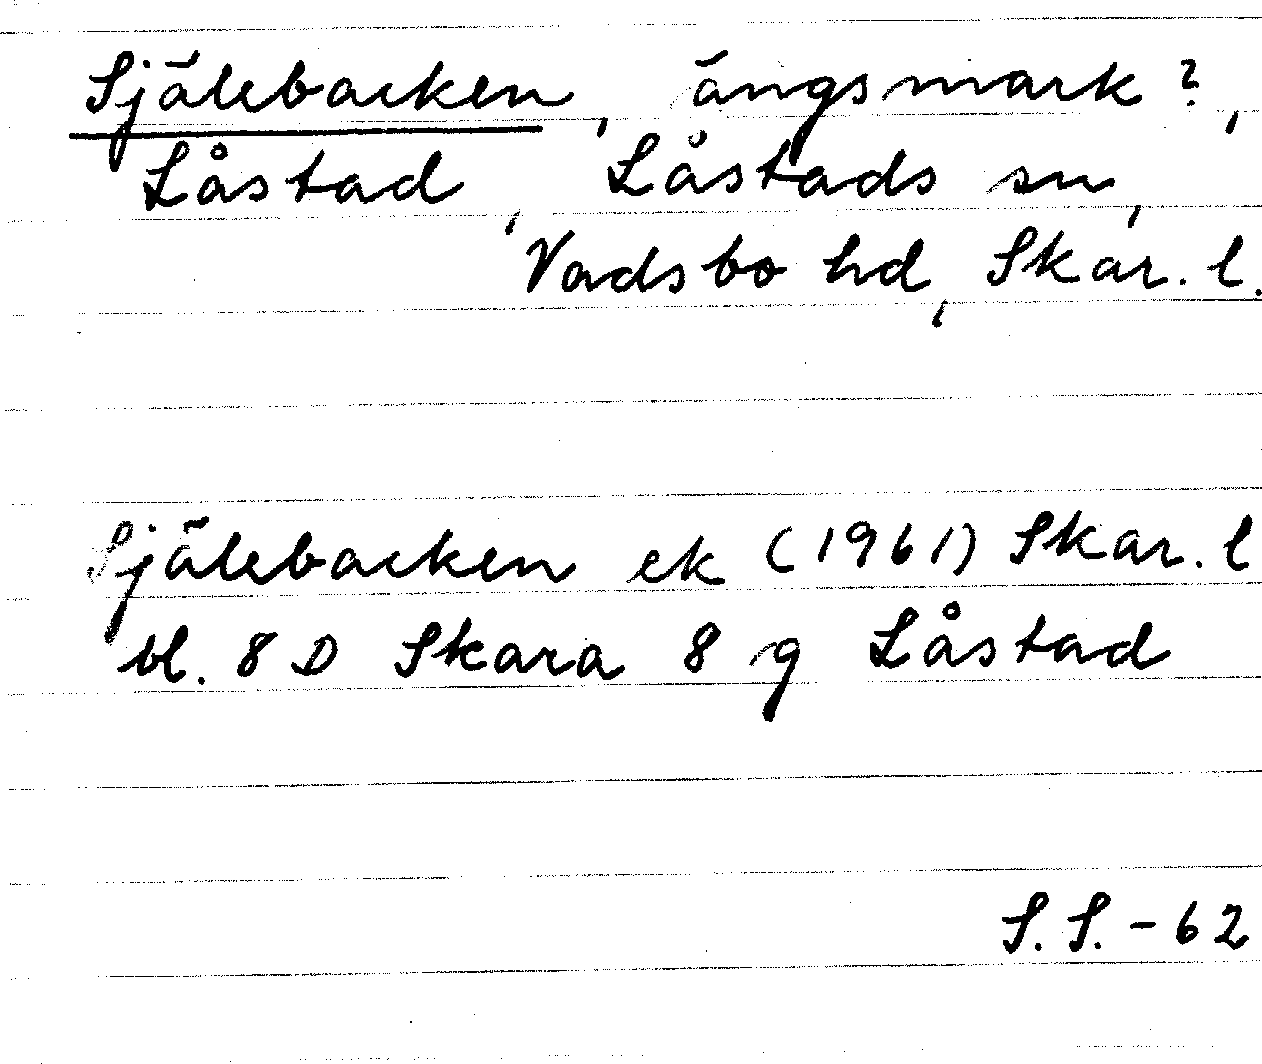 Själebacken, ängsmark?,
Låstad, Låstads sn,
Vadsbo hd, Skar. l.
Själebacken ek (1961) Skar. l
bl. 8 D Skara 8 g Låstad
S. S. - 62